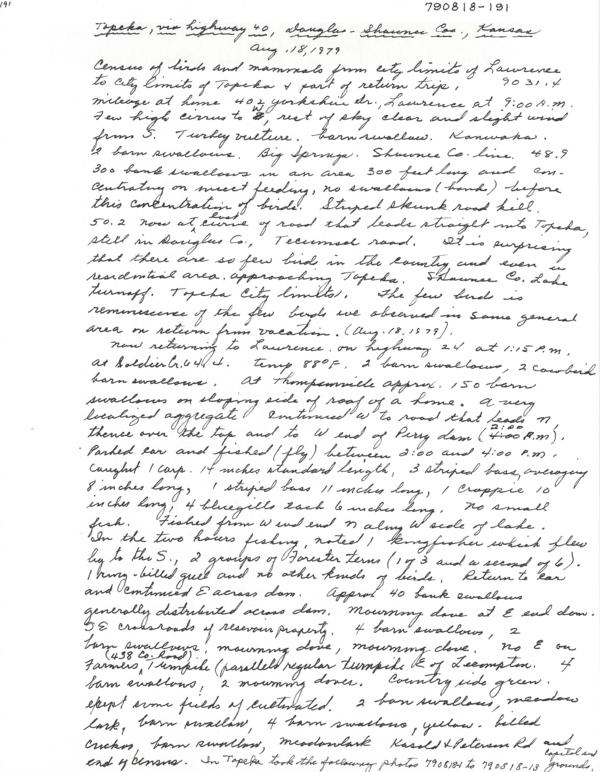 191
790818-191
Topeka, via highway 40, Douglas-Shawnee Cos., Kansas
Aug. 18, 1979
Census of birds and mammals from city limits of Lawrence
to city limits of Topeka & part of return trip. 9031.4
mileage at home 402 Yorkshire Dr., Lawrence at 9:00 A.M.
Few high cirrus to E, rest of sky clear and slight wind
from S. Turkey vulture. barn swallow. Kanwaka.
2 barn swallows. Big Springs. Shawnee Co. line. 48.9
300 bank swallows in an area 300 feet long and con-
centrating on insect feeding, no swallows (bank) before
this concentration of birds. Striped skunk road kill.
50.2 now at curve of road that leads straight into Topeka,
still in Douglas Co., Tecumseh road. It is surprising
that there are so few bird in the country and even in
residential area approaching Topeka. Shawnee Co. Lake
turnoff. Topeka City limits. The few birds is
reminescence of the few birds we observed in same general
area on return from vacation. (Aug. 18, 1979).
Now returning to Lawrence on highway 24 at 1:15 P.M.
at Soldier Cr. 64.4. temp 88°F. 2 barn swallows, 2 cowbird
barn swallows. At Thompsonville approx. 150 barn
swallows on sloping side of roof of a home. A very
localized aggregate. Continued W to road that leads N,
thence over the top and to W end of Perry dam (2:00 4:00 P.M).
Parked car and fished (fly) between 2:00 and 4:00 P.M.
Caught 1 carp. 14 inches standard length, 3 striped bass, averaging
8 inches long, 1 striped bass 11 inches long, 1 crappie 10
inches long, 4 bluegills each 6 inches long. No small
fish. Fished from W end N along W side of lake.
In the two hours fishing, noted 1 kingfisher which flew
by to the S., 2 groups of Forester terns (1 of 3 and a second of 6).
1 ring-billed gull and no other kinds of birds. Return to car
and continued E across dam. Approx 40 bank swallows
generally distributed across dam. Mourning dove at E end dam.
SE crossroads of resevoir property. 4 barn swallows, 2
barn swallows, mourning dove, mourning dove. No E on
(438 Co. Road)
Farmers Turnpike (parallels regular turnpike E of Lecompton. 4
barn swallows, 2 mourning doves. Country side green
exept some fields of cultivated. 2 barn swallows, meadow
lark, barn swallow, 4 barn swallows, yellow-billed
cuckoo, barn swallow, meadowlark Kasold & Peterson Rd and
end of census. In Topeka took the following photos 790818-1 to 790818-13 capitol and grounds.